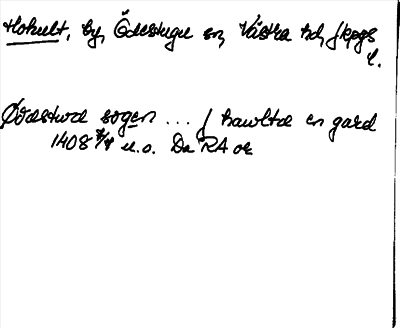 Hokult, by, Ödestugu sn, Västra hd, Jkpgs
l.
Ødastwdæ sogen ... J hawltæ en gard
1408 7/4 u.o. Da RA or